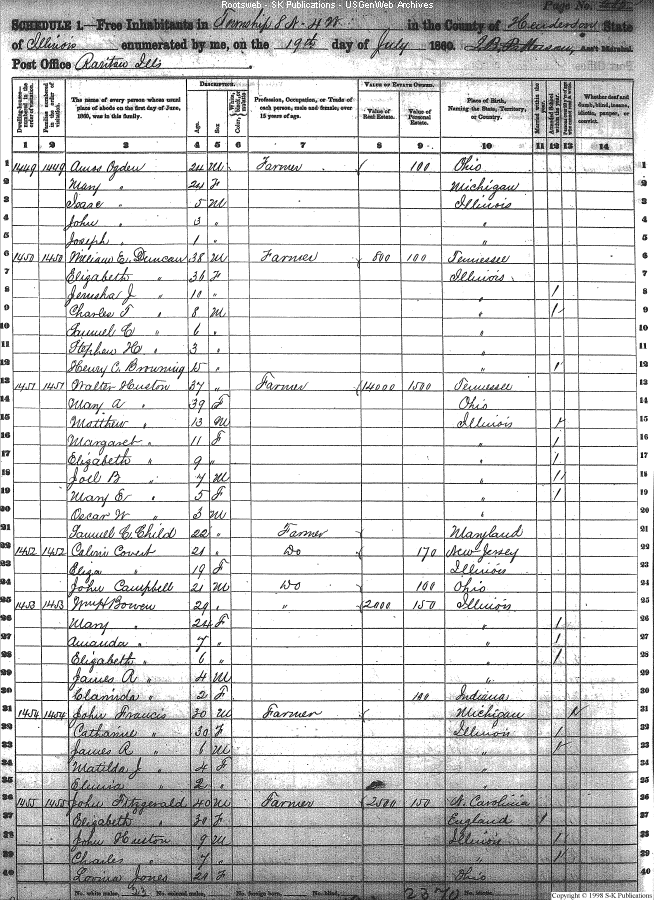 Rootsweb - SK Publications - USGenWeb Archives
Page No.
SCHEDULE 1.—Free Inhabitants in Township 8 N - 4 W in the County of Henderson State
of Illinois enumerated by me, on the 19th day of July 1860. Ass't Marshal.
Post Office Raritan Ills
Dwelling-houses—numbered in the order of visitation.
Families numbered in the order of visitation.
The name of every person whose usual place of abode on the first day of June, 1860, was in this family.
DESCRIPTION.
Age.
Sex
Color,
Profession, Occupation, or Trade of each person, male and female, over 15 years of age.
VALUE OF ESTATE OWNED.
Value of Real Estate.
Value of Personal Estate.
Place of Birth, Naming the State, Territory, or Country.
Married within the year.
Attended School within the year.
Whether deaf and dumb, blind, insane, idiotic, pauper, or convict.
1 2 3 4 5 6 7 8 9 10 11 12 13 14
1 1449 1449 Amos Ogden 24 M Farmer 100 Ohio 1
2 Mary " 24 F Michigan 2
3 Isaac " 5 M Illinois 3
4 John " 3 " " 4
5 Joseph " 1 " " 5
6 1450 1450 William E. Duncan 38 M Farmer 800 100 Tennessee 6
7 Elizabeth " 36 F Illinois 7
8 Jerusha J " 10 " " 1 8
9 Charles F " 8 M " 1 9
10 Samuel C " 6 " " 10
11 Stephen H " 3 " " 11
12 Henry C. Browning 15 " " 1 12
13 1451 1451 Walter Huston 37 " Farmer 14000 1500 Tennessee 13
14 Mary A " 39 F Ohio 14
15 Matthew " 13 M Illinois 1 15
16 Margaret " 11 F " 1 16
17 Elizabeth " 9 " " 1 17
18 Joel B " 7 M " 1 18
19 Mary E " 5 F " 1 19
20 Oscar W " 3 M " 20
21 Samuel C. Child 22 " Farmer Maryland 21
22 1452 1452 Calvin Covert 21 " Do 170 New Jersey 22
23 Eliza " 19 F Illinois 23
24 John Campbell 21 M Do 100 Ohio 24
25 1453 1453 Wm H Bowen 29 " " 2000 150 Illinois 25
26 Mary " 24 F " 1 26
27 Amanda " 7 " " 1 27
28 Elizabeth " 6 " " 1 28
29 James A " 4 M " 29
30 Clarinda " 2 F 100 Indiana 30
31 1454 1454 John Francis 30 M Farmer Michigan 31
32 Catharine " 30 F Illinois 1 32
33 James R " 6 M " 33
34 Matilda J " 4 F " 34
35 2 " " 35
36 1455 1455 John Fitzgerald 40 M Farmer 2500 150 N. Carolina 36
37 Elizabeth " 30 F England 1 37
38 John Huston 9 M Illinois 1 38
39 Charles " 7 " " 1 39
40 Lovina Jones 21 F Ohio 40
No. white males, 23 No. colored males, No. foreign born, No. blind, 2370 No. idiotic,
Copyright © 1998 S-K Publications